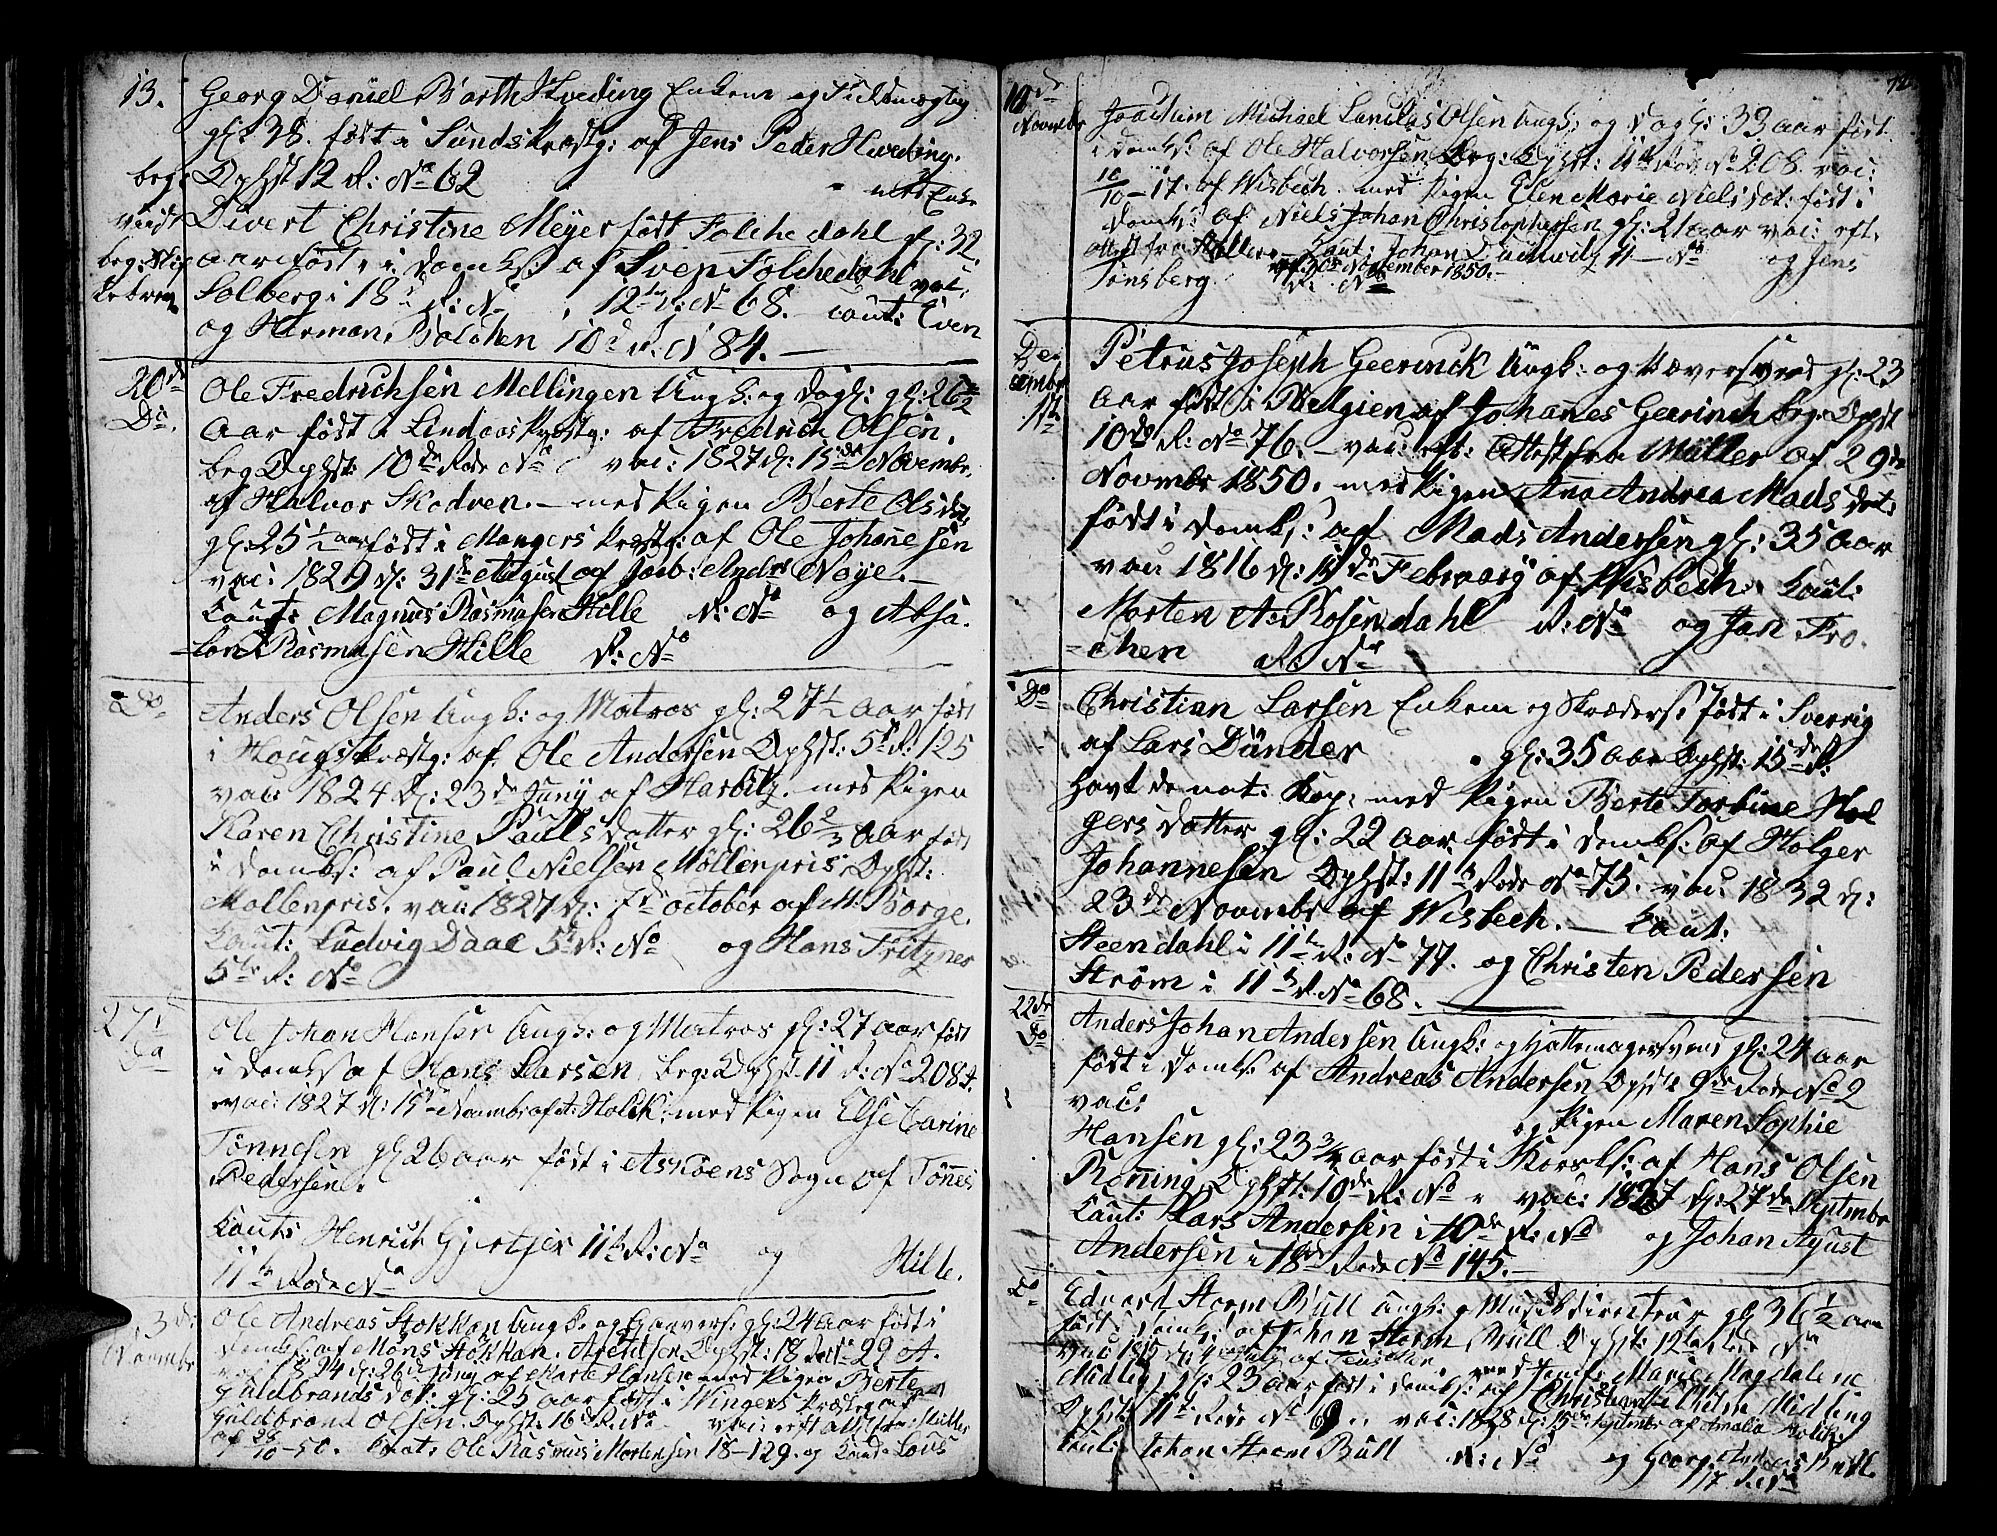 13. Georg Daniel Barth Hveding Enkem og Fuldmægtig
gl: 38. født i Sunds Præstg: af Jens Peder Hveding.
beg: Ophst 12 R: No 62 med Enke
Divert Christine Meyer født Folchedahl gl: 32.
aar født i Domks: af Sven Folchedahl vac:
Solberg i 18d R: No 12te R: No 68. Caut: Even
og Herman Bolchen 10d R. N 84. —
20de Do. Ole Fredrichsen Mellingen Ungk: og Dagl: gl: 26 1/2
Aar født i Lindaas Præstg: af Fredrich Olsen.
beg Ophst: 10de Rode No vac: 1827 d: 15de Novembr.
af Halvor Skodven. — med Pigen Berte Olsdat.
gl: 25 1/2 aar født i Mangers Præstg: af Ole Johanesen
vac: 1829 d: 31de August af Jacb: Andrs Noye. —
Caut: Magnus Rasmusen Hille R: No og Absa.
-lon Rasmusen Hille R: No
Do Anders Olsen Ungk: og Matros gl: 27 1/2 Aar født
i Hougs Præstg: af Ole Andersen Ophst: 5te R: 125
vac: 1824 d: 23de Juny af Harbitz. med Pigen
Karen Christine Pauls datter gl: 26 2/3 Aar født
i Domks: af Paul Nielsen Möllenpris, Ophst:
Mollenpris. vac: 1827 d: 7d October af M: Borge.
Caut: Ludvig Daae 5te R: No og Hans Fritzner
5te R: No
27d Do Ole Johan Hansen Ungk: og Matros gl: 27 aar født
i Domks af Hans Larsen, beg: Ophst 11 R: No 208
vac: 1827 d: 15de Novmbr af A: Holck. med Pigen Else Carine
Tönnesen gl 26 aar født i Askøens Sogn af Tönnes
Pedersen.
Caut: Henrich Gjertsen 11te R: No og Hille.
11te Rode No
3d Novmbr Ole Andreas Stokkan Ungk. og Garvers: gl: 24 Aar født i
Domks: af Mons Stokkan. Arentsen Ophst: 18 Rod No 29 A.
1824 d: 26de Juny af Marte Hansen med Pigen Berte
Guldbrands dat: gl: 25 aar født i Wingers Præsteg af
Guldbrand Olsen. Ophst: 16d R: No vac: eft Attest fra: Müller
af 28/10 - 50. Caut: Ole Rasmus Mortensen 18 - 129. og Lous
72
10de Novmbr Joachim Michael Olsen Ungk: og Dagl: 33 aar født
i Domks: af Ole Halvorsen beg: Ophst: 11te Rode No 208. vac:
10/10 - 17. af Wisbech. med Pigen Elen Marie Nielsdat: født i
Domks: af Niels Johan Christophersen gl: 21 aar vac: eft.
Attest fra Caut: Johan Ludewig 11 - No og Jens
af 30te November 1850. —
Tönsberg R: No
December 1te Petrus Joseph Geerinck Ungk: og Væversvend gl: 23
Aar født i Belgien af Johanes Geerinch beg: Ophst
10de R: No 76. - vac: eft: Attest fra Müller af 29de
Novmbr 1850. med Pigen Ana Andrea Mads dat:
født i Domks: af Mads Andersen gl: 35 aar
vac: 1816 d: 11de Februarÿ af Wisbech. Caut:
Morten A: Rosendahl R: No og Jan Fro.
-chen R: No
Do Christian Larsen Enkem og Skræders: født i Sverrig
af Lars Dünder gl: 35 Aar Ophst: 15de R:
havt de nat: Kop: med Pigen Berte Torbine Hol
gers datter gl: 22 aar født i Domks: af Holger
Johannesen Ophst: 11te Rode No 75. vac: 1832 d:
23de Novmbr af Wisbech. — Caut:
Steendahl i 11te R: No 77. og Christen Pedersen
Strøm i 11te R: No 68. —
22de Do Anders Johan Andersen Ungk: og Hattemagersvend gl: 24 aar
født i Domks: af Andreas Andersen Ophst: 9de Rode No 2
vac: og Pigen Maren Sophie
Hansen gl: 23 3/4 aar født i Korsks: af Hans Olsen
Röning Ophst: 19de R: No vac: 1827 d: 27de Septmbr
Caut: Lars Andersen i 10de R: No og Johan Agust
Andersen i 18de Rode No 145. —
Do Edvard Storm Bull Ungk: og Musikdirecteur gl 36 1/2 aar
født i Domks: af Johan Storm Bull Ophst: 12te Rode No
vac 1815 d: 4 July af med Jomf: Marie Magdalene
Midling gl: 23 aar født i Domks: af Christian Wilh: Midling
Ophst: 11te Rode No 69. vac: 1828 d: 15de Septmbr af Amalia Holck.
Caut: Johan Storm Bull R: No og Georg Andreas Bull
17 R: No